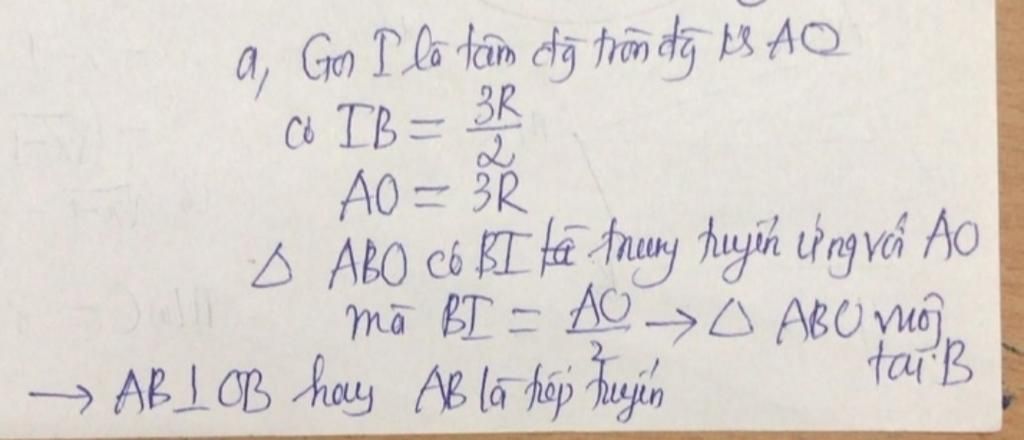 a, Gọi I là tâm đg tròn đg kính AO
có IB = 3R/2
AO = 3R
△ ABO có BI là trung tuyến ứng với AO
mà BI = AO/2 → △ ABO vuông tại B
→ AB ⊥ OB hay AB là tiếp tuyến